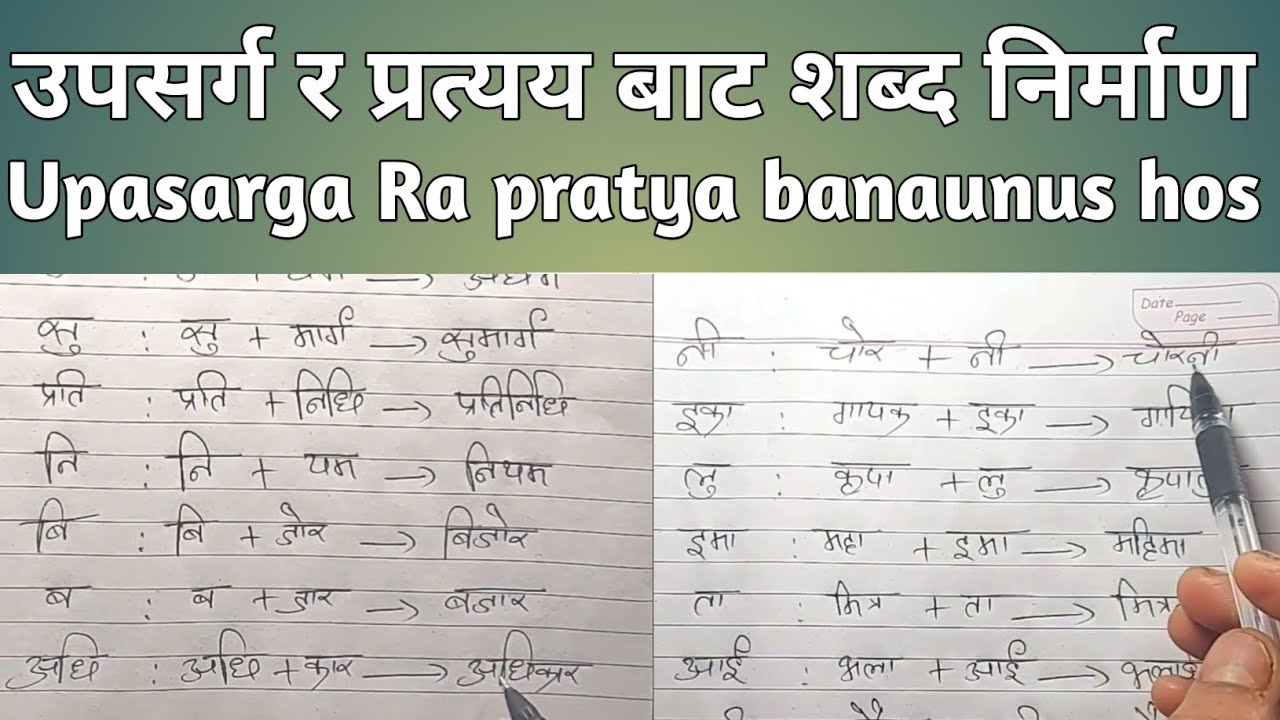 उपसर्ग र प्रत्यय बाट शब्द निर्माण
Upasarga Ra pratya banaunus hos
सु : सु + मार्ग → सुमार्ग
प्रति : प्रति + निधि → प्रतिनिधि
नि : नि + यम → नियम
बि : बि + जोर → बिजोर
ब : ब + जार → बजार
अधि : अधि + कार → अधिकार
Date
Page
नी : चोर + नी → चोरनी
इका : गायक + इका →
लु : कृपा + लु →
इमा : महा + इमा → महिमा
ता : मित्र + ता →
आई : भला + आई →